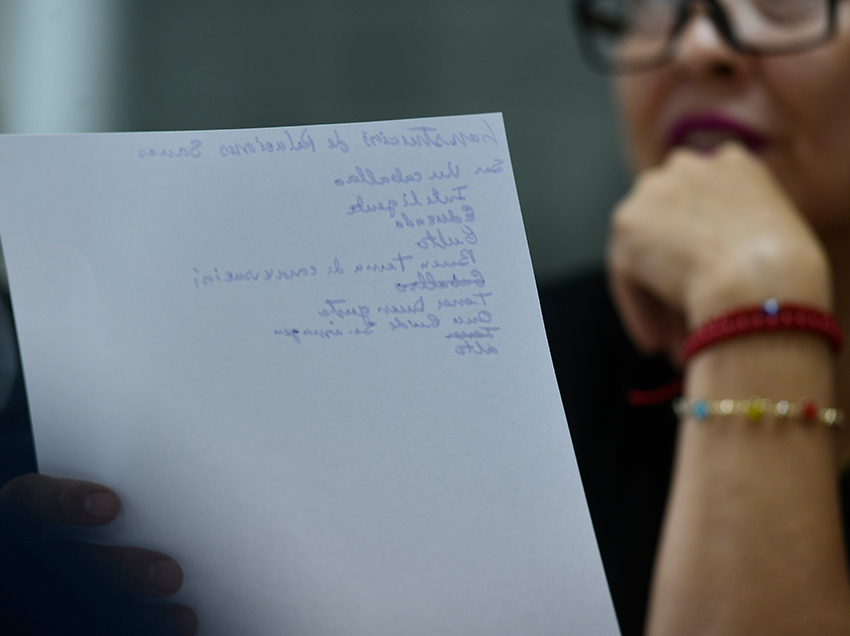 Construcion de Relaciones Sanas
Ser Un caballero
Inteligente
Educado
Culto
Buen Tema de conversacion
Caballero
Tener buen gusto
Que cuide su imagen
alto